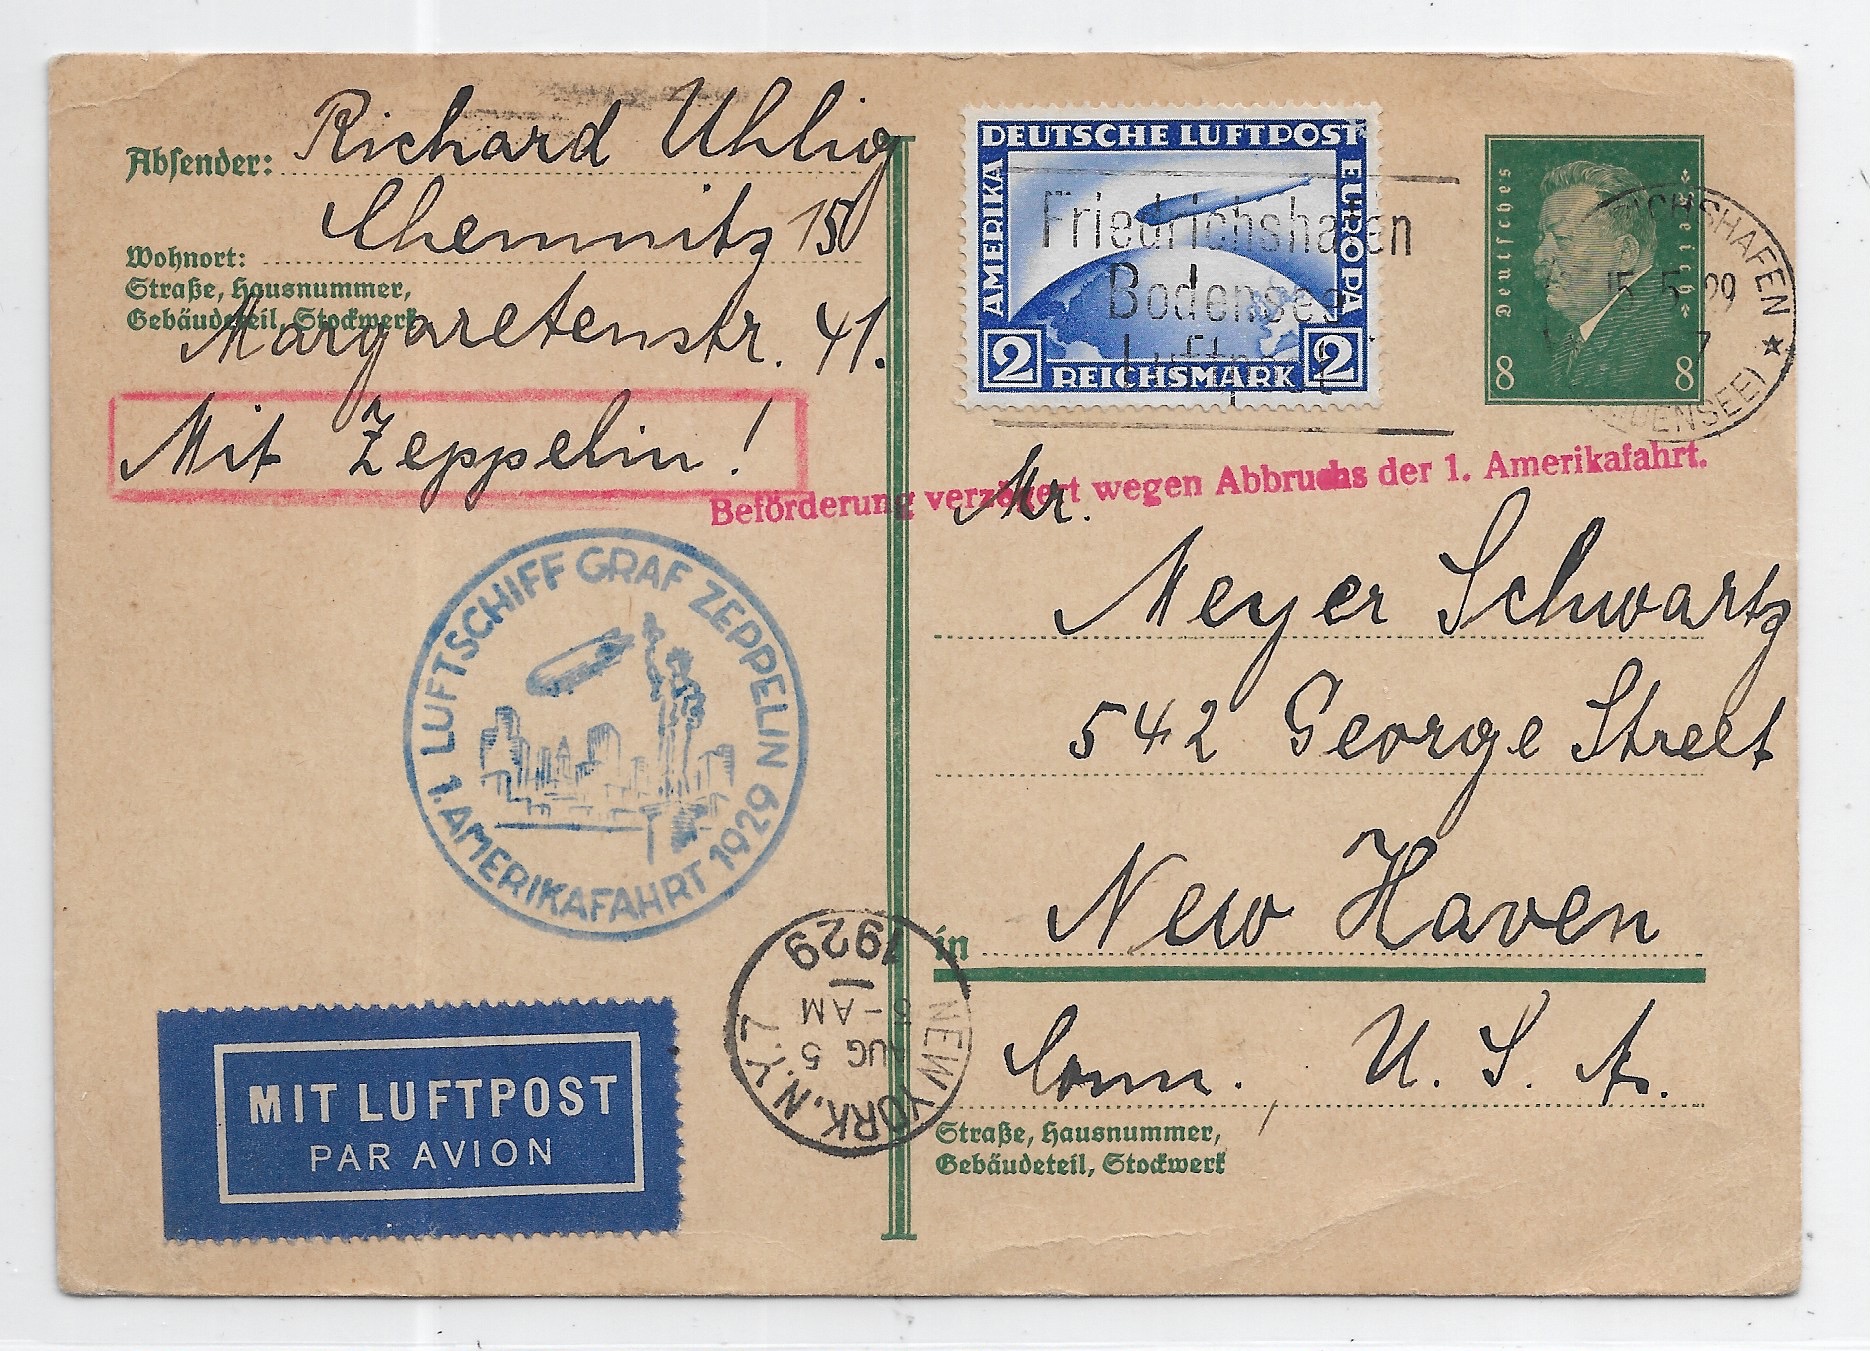 Absender: Richard Uhlig
Wohnort: Chemnitz 15
Straße, Hausnummer,
Gebäudeteil, Stockwerk
Margaretenstr. 41.
Mit Zeppelin!
DEUTSCHE LUFTPOST
AMERIKA
EUROPA
2 2
REICHSMARK
Friedrichshafen
Bodensee
Luftpost
Deutsches
Reich
8 8
15 5 29
7
(BODENSEE)
Beförderung verzögert wegen Abbruchs der 1. Amerikafahrt.
Mr.
Meyer Schwartz
542 George Street
in New Haven
Conn. U. S. A.
Straße, Hausnummer,
Gebäudeteil, Stockwerk
LUFTSCHIFF GRAF ZEPPELIN
1. AMERIKAFAHRT 1929
NEW YORK, N.Y.
AUG 5
AM
1929
MIT LUFTPOST
PAR AVION